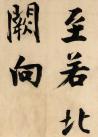 至若北
闕向